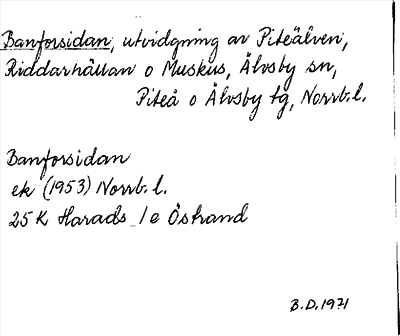 Banforsidan, utvidgning av Piteälven,
Riddarhällan o Muskus, Älvsby sn,
Piteå o Älvsby tg, Norrb.l.
Banforsidan
ek (1953) Norrb. l.
25 K Harads 1 e Östrand
B.D. 1971